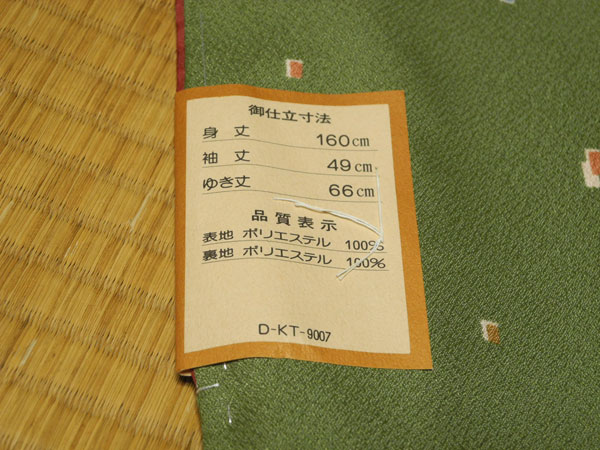 御仕立寸法
身丈 160cm
袖丈 49cm
ゆき丈 66cm
品質表示
表地 ポリエステル 100%
裏地 ポリエステル 100%
D-KT-9007